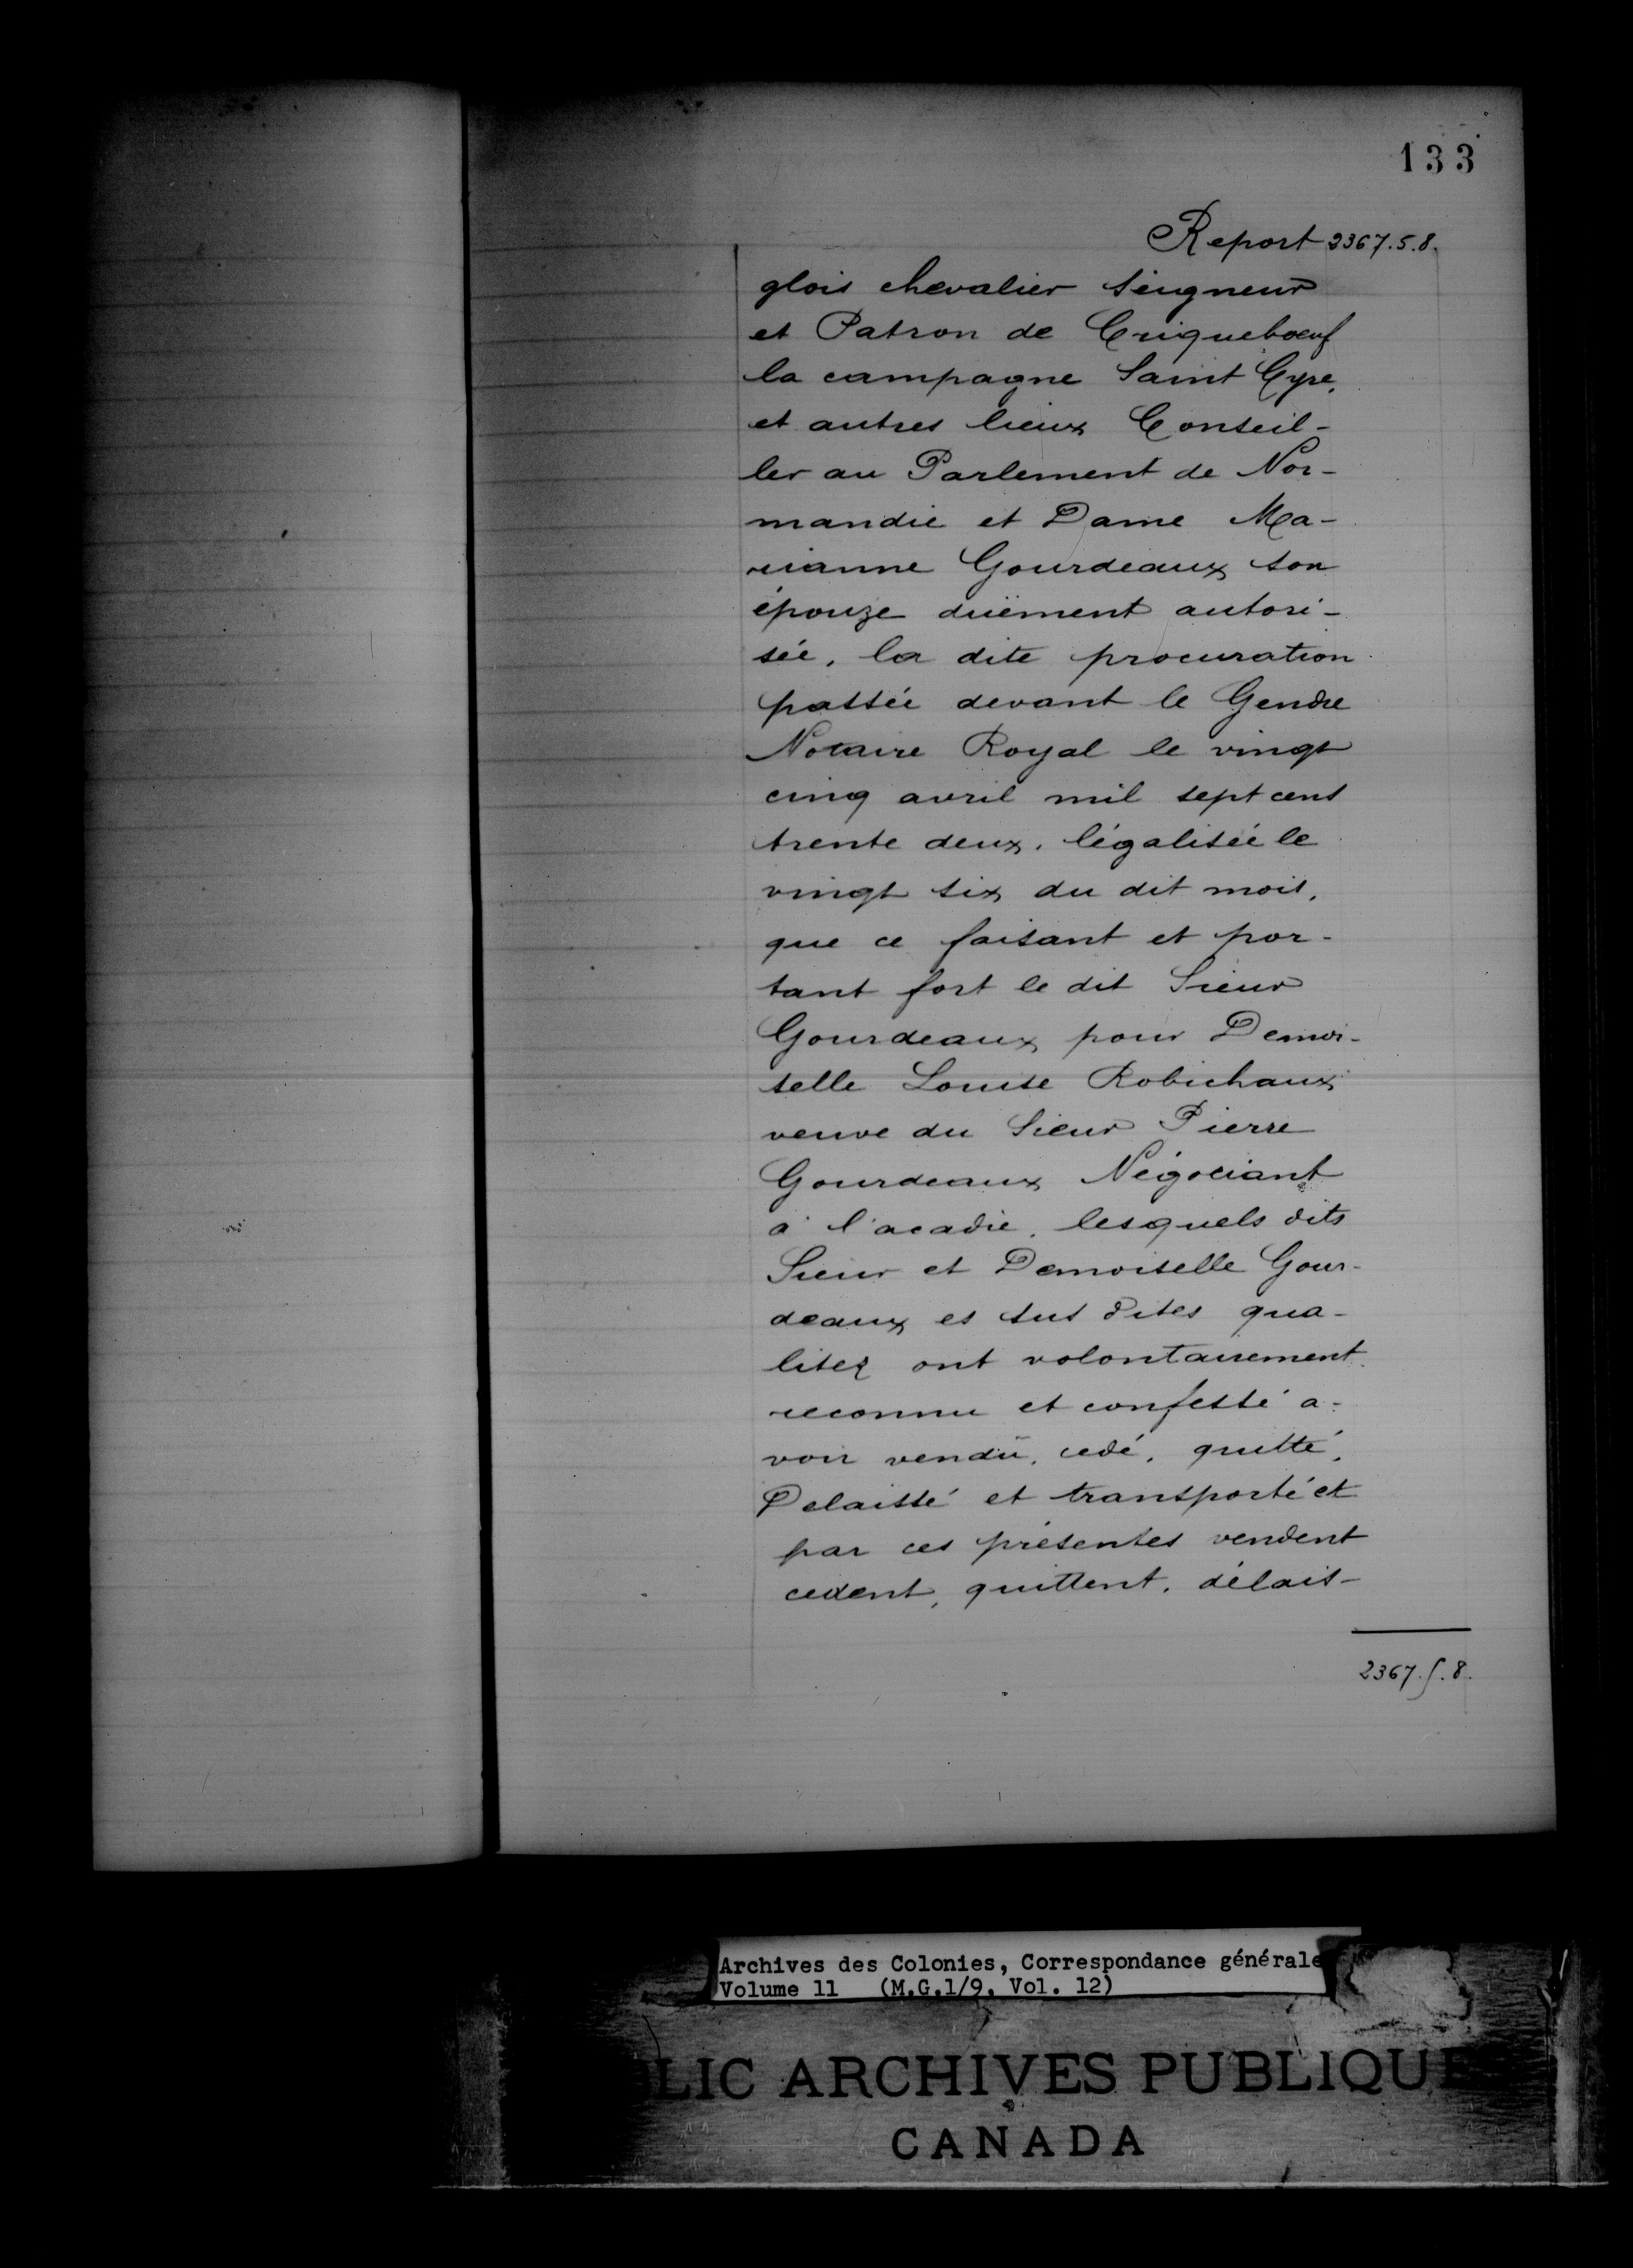 133
Report 2367.5.8.
glois chevalier seigneur
et Patron de Criquebœuf
la campagne Saint Cyre,
et autres lieux Conseil-
ler au Parlement de Nor-
mandie et Dame Ma-
rianne Gourdeaux son
épouze duëment autori-
sée, la dite procuration
passée devant le Gendre
Notaire Royal le vingt
cinq avril mil sept cent
trente deux, légalisée le
vingt six du dit mois,
que ce faisant et por-
tant fort le dit Sieur
Gourdeaux pour Demoi-
selle Louise Robichaux
veuve du Sieur Pierre
Gourdeaux Négociant
à l'acadie, lesquels dits
Sieur et Demoiselle Gour-
deaux es sus dites qua-
litez ont volontairement
reconnu et confessé a-
voir vendû, cedé, quitté,
Delaissé et transporté et
par ces présentes vendent
cedent, quittent, délais-
2367.5.8.
Archives des Colonies, Correspondance générale
Volume 11 (M.G.1/9, Vol. 12)
LIC ARCHIVES PUBLIQUE
CANADA